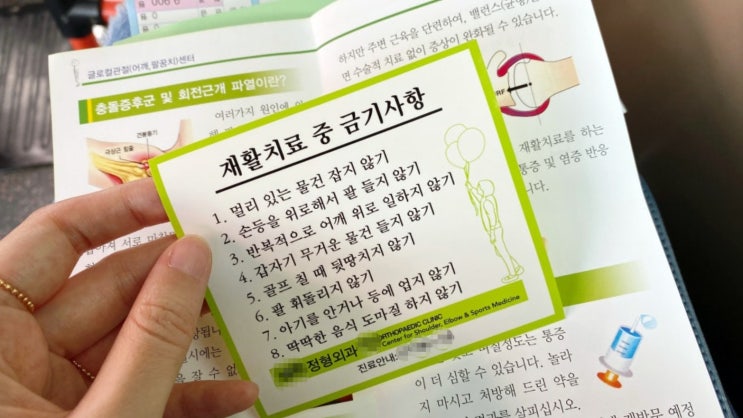 글로컬관절(어깨,팔꿈치)센터
충돌증후군 및 회전근개 파열이란?
여러가지 원인에
건봉돌기
극상근 힘줄
하지만 주변 근육을 단련하여, 밸런스(균형)
면 수술적 치료 없이 증상이 완화될 수 있습니다.
재활치료를 하는
통증 및 염증 반응
니다.
재활치료 중 금기사항
1. 멀리 있는 물건 잡지 않기
2. 손등을 위로해서 팔 들지 않기
3. 반복적으로 어깨 위로 일하지 않기
4. 갑자기 무거운 물건 들지 않기
5. 골프 칠 때 뒷땅치지 않기
6. 팔 휘둘리지 않기
7. 아기를 안거나 등에 업지 않기
8. 딱딱한 음식 도마질 하지 않기
정형외과
ORTHOPAEDIC CLINIC
Center for Shoulder, Elbow & Sports Medicine
진료안내:
정도는 통증
이 더 심할 수 있습니다. 놀라
지 마시고 처방해 드린 약을
살피십시오.